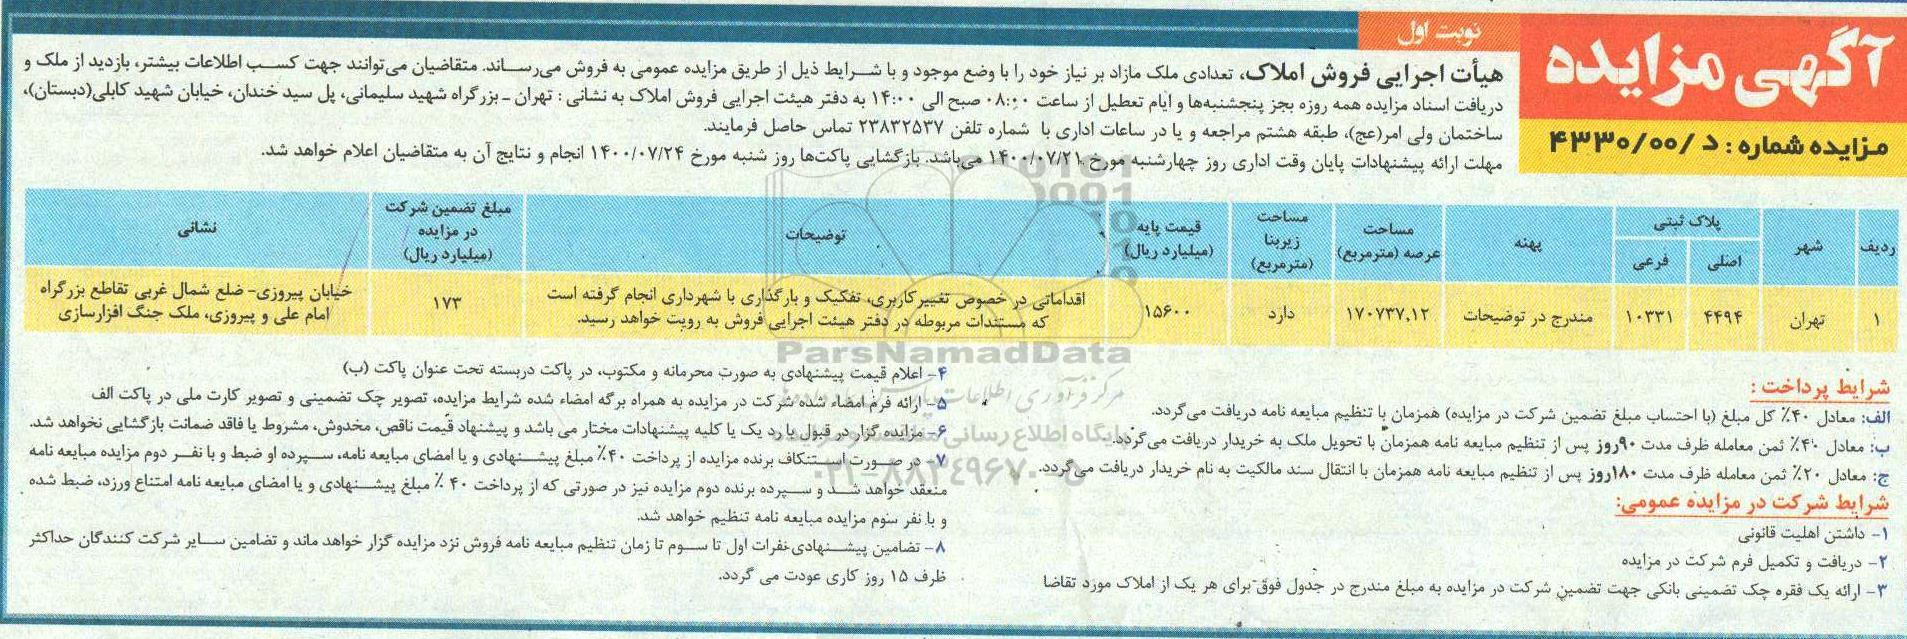 آگهی مزایده
مزایده شماره : د/۴۳۳۰/۰۰
نوبت اول
هیأت اجرایی فروش املاک، تعدادی ملک مازاد بر نیاز خود را با وضع موجود و با شرایط ذیل از طریق مزایده عمومی به فروش می‌رساند. متقاضیان می‌توانند جهت کسب اطلاعات بیشتر، بازدید از ملک و
دریافت اسناد مزایده همه روزه بجز پنجشنبه‌ها و ایام تعطیل از ساعت ۰۸:۰۰ صبح الی ۱۴:۰۰ به دفتر هیئت اجرایی فروش املاک به نشانی : تهران - بزرگراه شهید سلیمانی، پل سید خندان، خیابان شهید کابلی(دبستان)،
ساختمان ولی امر(عج)، طبقه هشتم مراجعه و یا در ساعات اداری با شماره تلفن ۲۳۸۳۲۵۳۷ تماس حاصل فرمایند.
مهلت ارائه پیشنهادات پایان وقت اداری روز چهارشنبه مورخ ۱۴۰۰/۰۷/۲۱ می‌باشد. بازگشایی پاکت‌ها روز شنبه مورخ ۱۴۰۰/۰۷/۲۴ انجام و نتایج آن به متقاضیان اعلام خواهد شد.
ردیف شهر پلاک ثبتی اصلی فرعی پهنه مساحت عرصه (مترمربع) مساحت زیربنا (مترمربع) قیمت پایه (میلیارد ریال) توضیحات مبلغ تضمین شرکت در مزایده (میلیارد ریال) نشانی
۱ تهران ۴۴۹۴ ۱۰۳۳۱ مندرج در توضیحات ۱۷۰۷۳۷.۱۲ دارد ۱۵۶۰۰ اقداماتی در خصوص تغییرکاربری، تفکیک و بارگذاری با شهرداری انجام گرفته است که مستندات مربوطه در دفتر هیئت اجرایی فروش به رویت خواهد رسید. ۱۷۳ خیابان پیروزی- ضلع شمال غربی تقاطع بزرگراه امام علی و پیروزی، ملک جنگ افزارسازی
ParsNamadData
شرایط پرداخت :
الف: معادل ۴۰٪ کل مبلغ (با احتساب مبلغ تضمین شرکت در مزایده) همزمان با تنظیم مبایعه نامه دریافت می‌گردد.
ب: معادل ۴۰٪ ثمن معامله ظرف مدت ۹۰روز پس از تنظیم مبایعه نامه همزمان با تحویل ملک به خریدار دریافت می‌گردد.
ج: معادل ۲۰٪ ثمن معامله ظرف مدت ۱۸۰روز پس از تنظیم مبایعه نامه همزمان با انتقال سند مالکیت به نام خریدار دریافت می‌گردد.
شرایط شرکت در مزایده عمومی:
۱- داشتن اهلیت قانونی
۲- دریافت و تکمیل فرم شرکت در مزایده
۳- ارائه یک فقره چک تضمینی بانکی جهت تضمین شرکت در مزایده به مبلغ مندرج در جدول فوق برای هر یک از املاک مورد تقاضا
۴- اعلام قیمت پیشنهادی به صورت محرمانه و مکتوب، در پاکت دربسته تحت عنوان پاکت (ب)
۵- ارائه فرم امضاء شده شرکت در مزایده به همراه برگه امضاء شده شرایط مزایده، تصویر چک تضمینی و تصویر کارت ملی در پاکت الف
۶- مزایده گزار در قبول یا رد یک یا کلیه پیشنهادات مختار می باشد و پیشنهاد قیمت ناقص، مخدوش، مشروط یا فاقد ضمانت بازگشایی نخواهد شد.
۷- در صورت استنکاف برنده مزایده از پرداخت ۴۰٪ مبلغ پیشنهادی و یا امضای مبایعه نامه، سپرده او ضبط و با نفر دوم مزایده مبایعه نامه
منعقد خواهد شد و سپرده برنده دوم مزایده نیز در صورتی که از پرداخت ۴۰ ٪ مبلغ پیشنهادی و یا امضای مبایعه نامه امتناع ورزد، ضبط شده
و با نفر سوم مزایده مبایعه نامه تنظیم خواهد شد.
۸- تضامین پیشنهادی نفرات اول تا سوم تا زمان تنظیم مبایعه نامه فروش نزد مزایده گزار خواهد ماند و تضامین سایر شرکت کنندگان حداکثر
ظرف ۱۵ روز کاری عودت می گردد.